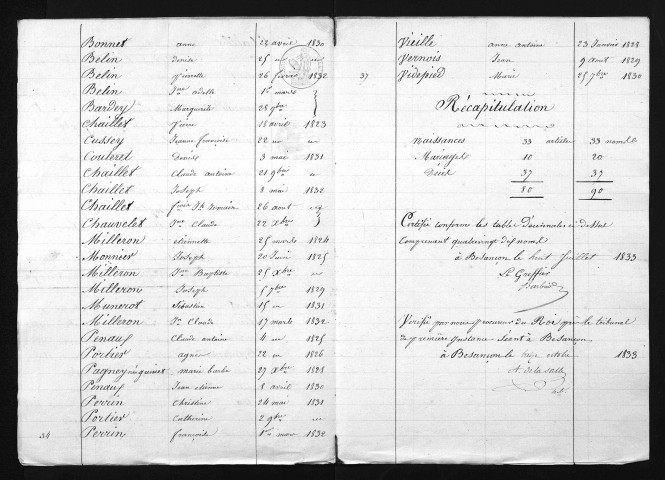 Bonnet anne 22 avril 1830
Belin Denise 25 „ „
Belin Pierrette 26 février 1832
Belin Jne adelle 1er mars
Bardey Marguerite 28 9bre
Chaillet Pierre 18 avril 1823
Cussey Jeanne françoise 22 „ „
Couleret Denise 3 mai 1831
Chaillet Claude antoine 21 9bre „
Chaillet Joseph 3 mai 1832
Chaillet 26 aout „
Chauvelet Jne Claude 22 Xbre
Milleron etiennette 25 mars 1824
Monnier Joseph 20 Juin 1825
Milleron Jn Baptiste 25 Xbre „
Milleron Joseph 5 7bre 1829
Munerot Sébastien 15 „ 1831
Milleron Jn Claude 17 mars 1832
Penaud Claude antoine 4 „ 1825
Portier agnès 22 „ 1826
marie barbe 27 Xbre 1828
Penaud Jean etienne 8 avril 1830
Perrin Christine 24 mai 1831
Portier Catherine 2 9bre „
34 Perrin françoise 1er mars 1832
Vieille anne antoine 23 Janvier 1828
Vernois Jean 9 aout 1829
37 Videpied Marie 25 7bre 1830
Récapitulation
Naissances 33 articles 33 noms
Mariages 10 20
Décès 37 37
80 90
Certifié conforme les tables Décennales ci-dessus
comprenant quatrevingt dix noms
à Besançon le huit Juillet 1833
Le Greffier
Vérifié par nous procureur du Roi près le tribunal
de premiere instance séant à Besançon
à Besançon le octobre 1833